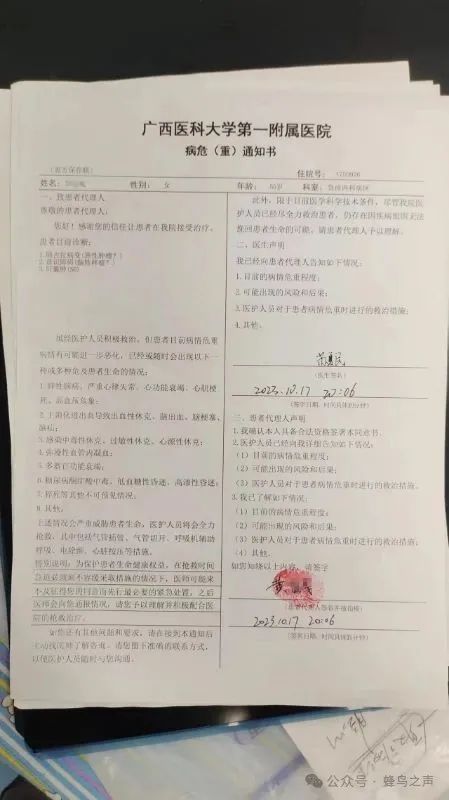 广西医科大学第一附属医院
病危（重）通知书
（官方保存联）
住院号：
姓名：
性别： 女
年龄： 科室：急诊内科病区
一、致患者代理人
尊敬的患者代理人：
您好！感谢您的信任让患者在我院接受治疗。
患者目前诊断：
虽经医护人员积极救治，但患者目前病情危重
病情有可能进一步恶化，已经或随时会出现以下一
种或多种危及患者生命的情况：
衰竭、心肌梗
死、高血压危象；
2.上消化道出血导致出血性休克、脑出血、脑梗塞、
脑疝；
3.感染中毒性休克、过敏性休克、心源性休克；
4.弥漫性血管内凝血；
5.多器官功能衰竭；
6.糖尿病酮症酸中毒、低血糖性昏迷、高渗性昏迷；
7.猝死等其他不可预见情况；
8.其他。
上述情况会严重威胁患者生命，医护人员将会全力
抢救，其中包括气管插管、气管切开、呼吸机辅助
呼吸、电除颤、心脏按压等措施。
特别说明：为保护患者生命健康权益，在抢救时间
急迫必须刻不容缓采取措施的情况下，医师可能来
不及征得您的同意而先行最必要的紧急处置，之后
医师会向您通报情况，请您予以理解并积极配合医
院的抢救治疗。
如您还有其他问题和要求，请在接到本通知后
主动找医师了解咨询。请您留下准确的联系方式，
以便医护人员随时与您沟通。
此外，限于目前医学科学技术条件，尽管我院医
护人员已经尽全力救治患者，仍存在因疾病原因无法
挽回患者生命的可能，请患者代理人予以理解。
二、医生声明
我已经向患者代理人告知如下情况：
1.目前的病情危重程度；
2.可能出现的风险和后果；
3.医护人员对于患者病情危重时进行的救治措施；
4.其他。
（医生签名）
2023.10.17 20:06
（签字日期，时间具体到分钟）
三、患者代理人声明
1.我确认本人具备合法资格签署本同意书。
2.医护人员已经向我详细告知如下情况：
（1）目前的病情危重程度；
（2）可能出现的风险和后果；
（3）医护人员对于患者病情危重时进行的救治措施；
3.我已了解如下情况：
（1）目前的病情危重程度；
（2）可能出现的风险和后果；
（3）医护人员对于患者病情危重时进行的救治措施；
（4）其他。
如您知晓以上内容，请签字
2023.10.17 20:06
（签字日期，时间具体到分钟）
公众号 · 蜂鸟之声